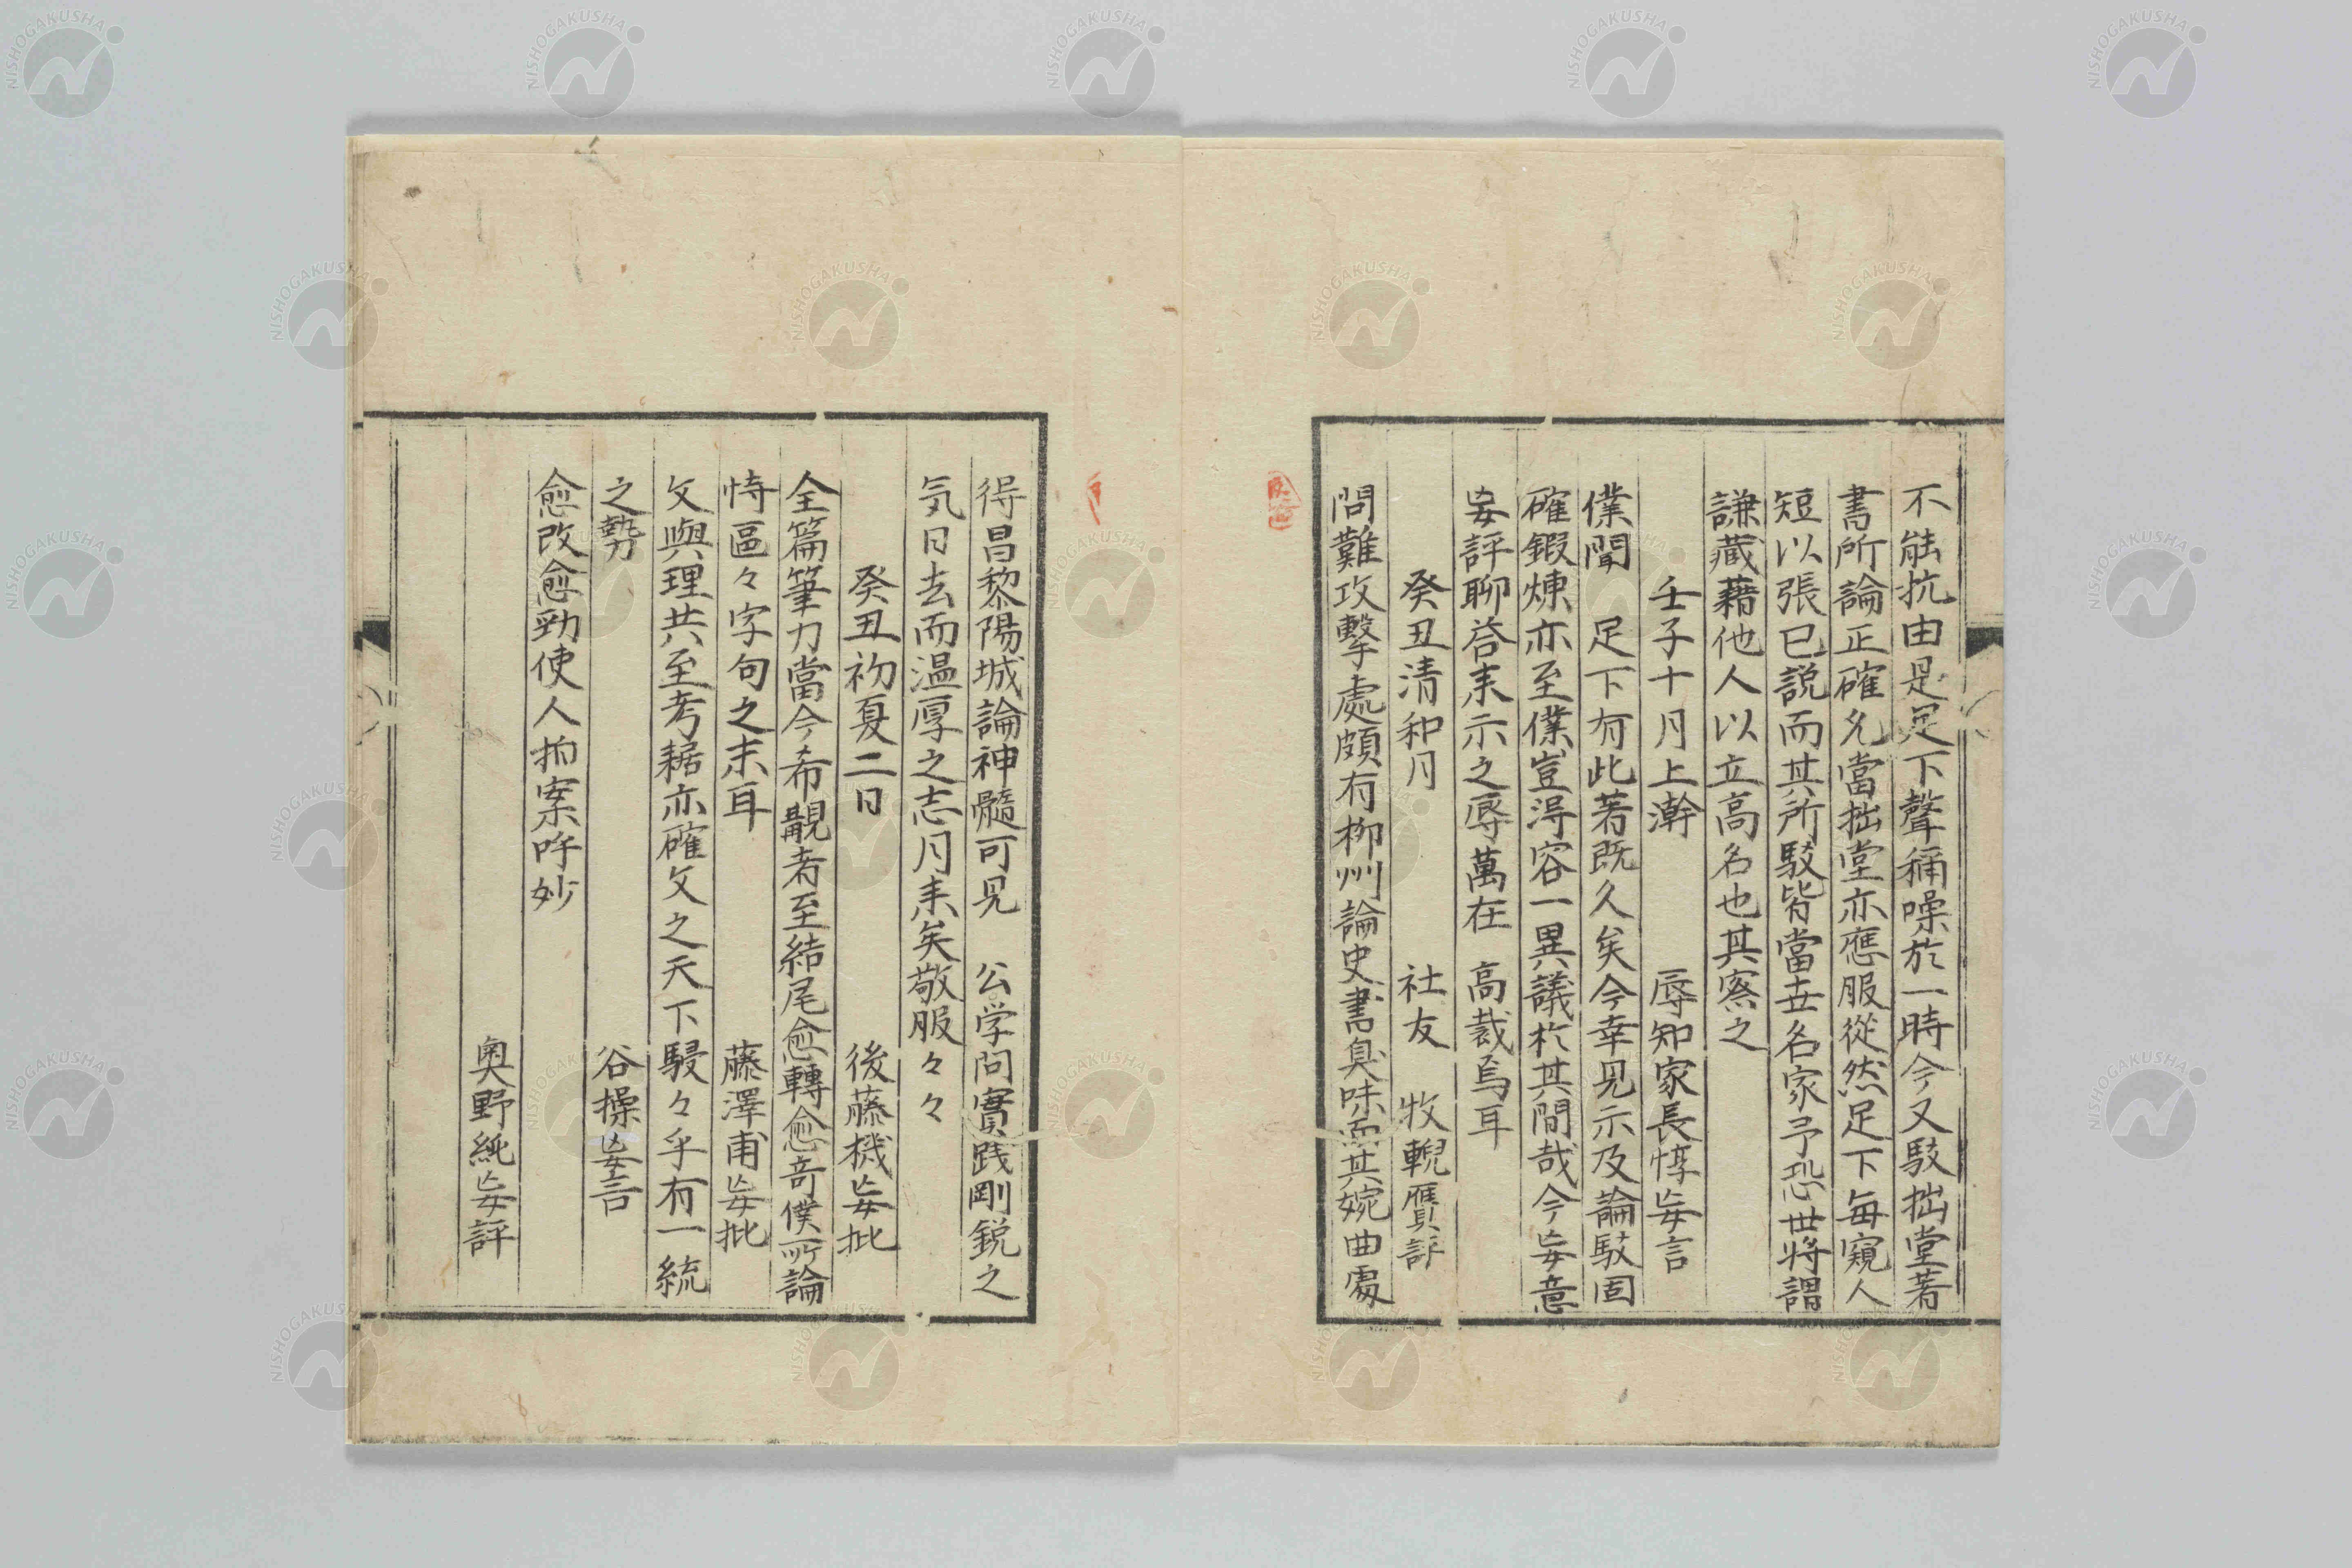 不能抗由是足下聲稱噪於一時今又駁拙堂著
書所論正確允當拙堂亦應服從然足下毎窺人
短以張已説而其所駁皆當世名家予恐世將謂
謙藏藉他人以立高名也其察之
壬子十月上澣　辱知家長惇妄言
僕聞　足下有此著既久矣今幸見示及論駁固
確鍜煉亦至僕豈得容一異議於其間哉今妄意
妄評聊荅来示之辱萬在　高裁焉耳
癸丑清和月　社友　牧輗贋評
問難攻擊處頗有柳州論史書臭味而其婉曲處
得昌黎陽城論神髓可見　公学問實踐剛鋭之
気日去而温厚之志月来矣敬服々々
癸丑初夏二日　後藤機妄批
全篇筆力當今希覯者至結尾愈轉愈竒僕所論
恃區々字句之末耳　藤澤甫妄批
文與理共至考据亦確文之天下駸々乎有一統
之勢　谷操妄言
愈改愈勁使人拍案呼妙
奥野純妄評
NISHOGAKUSHA